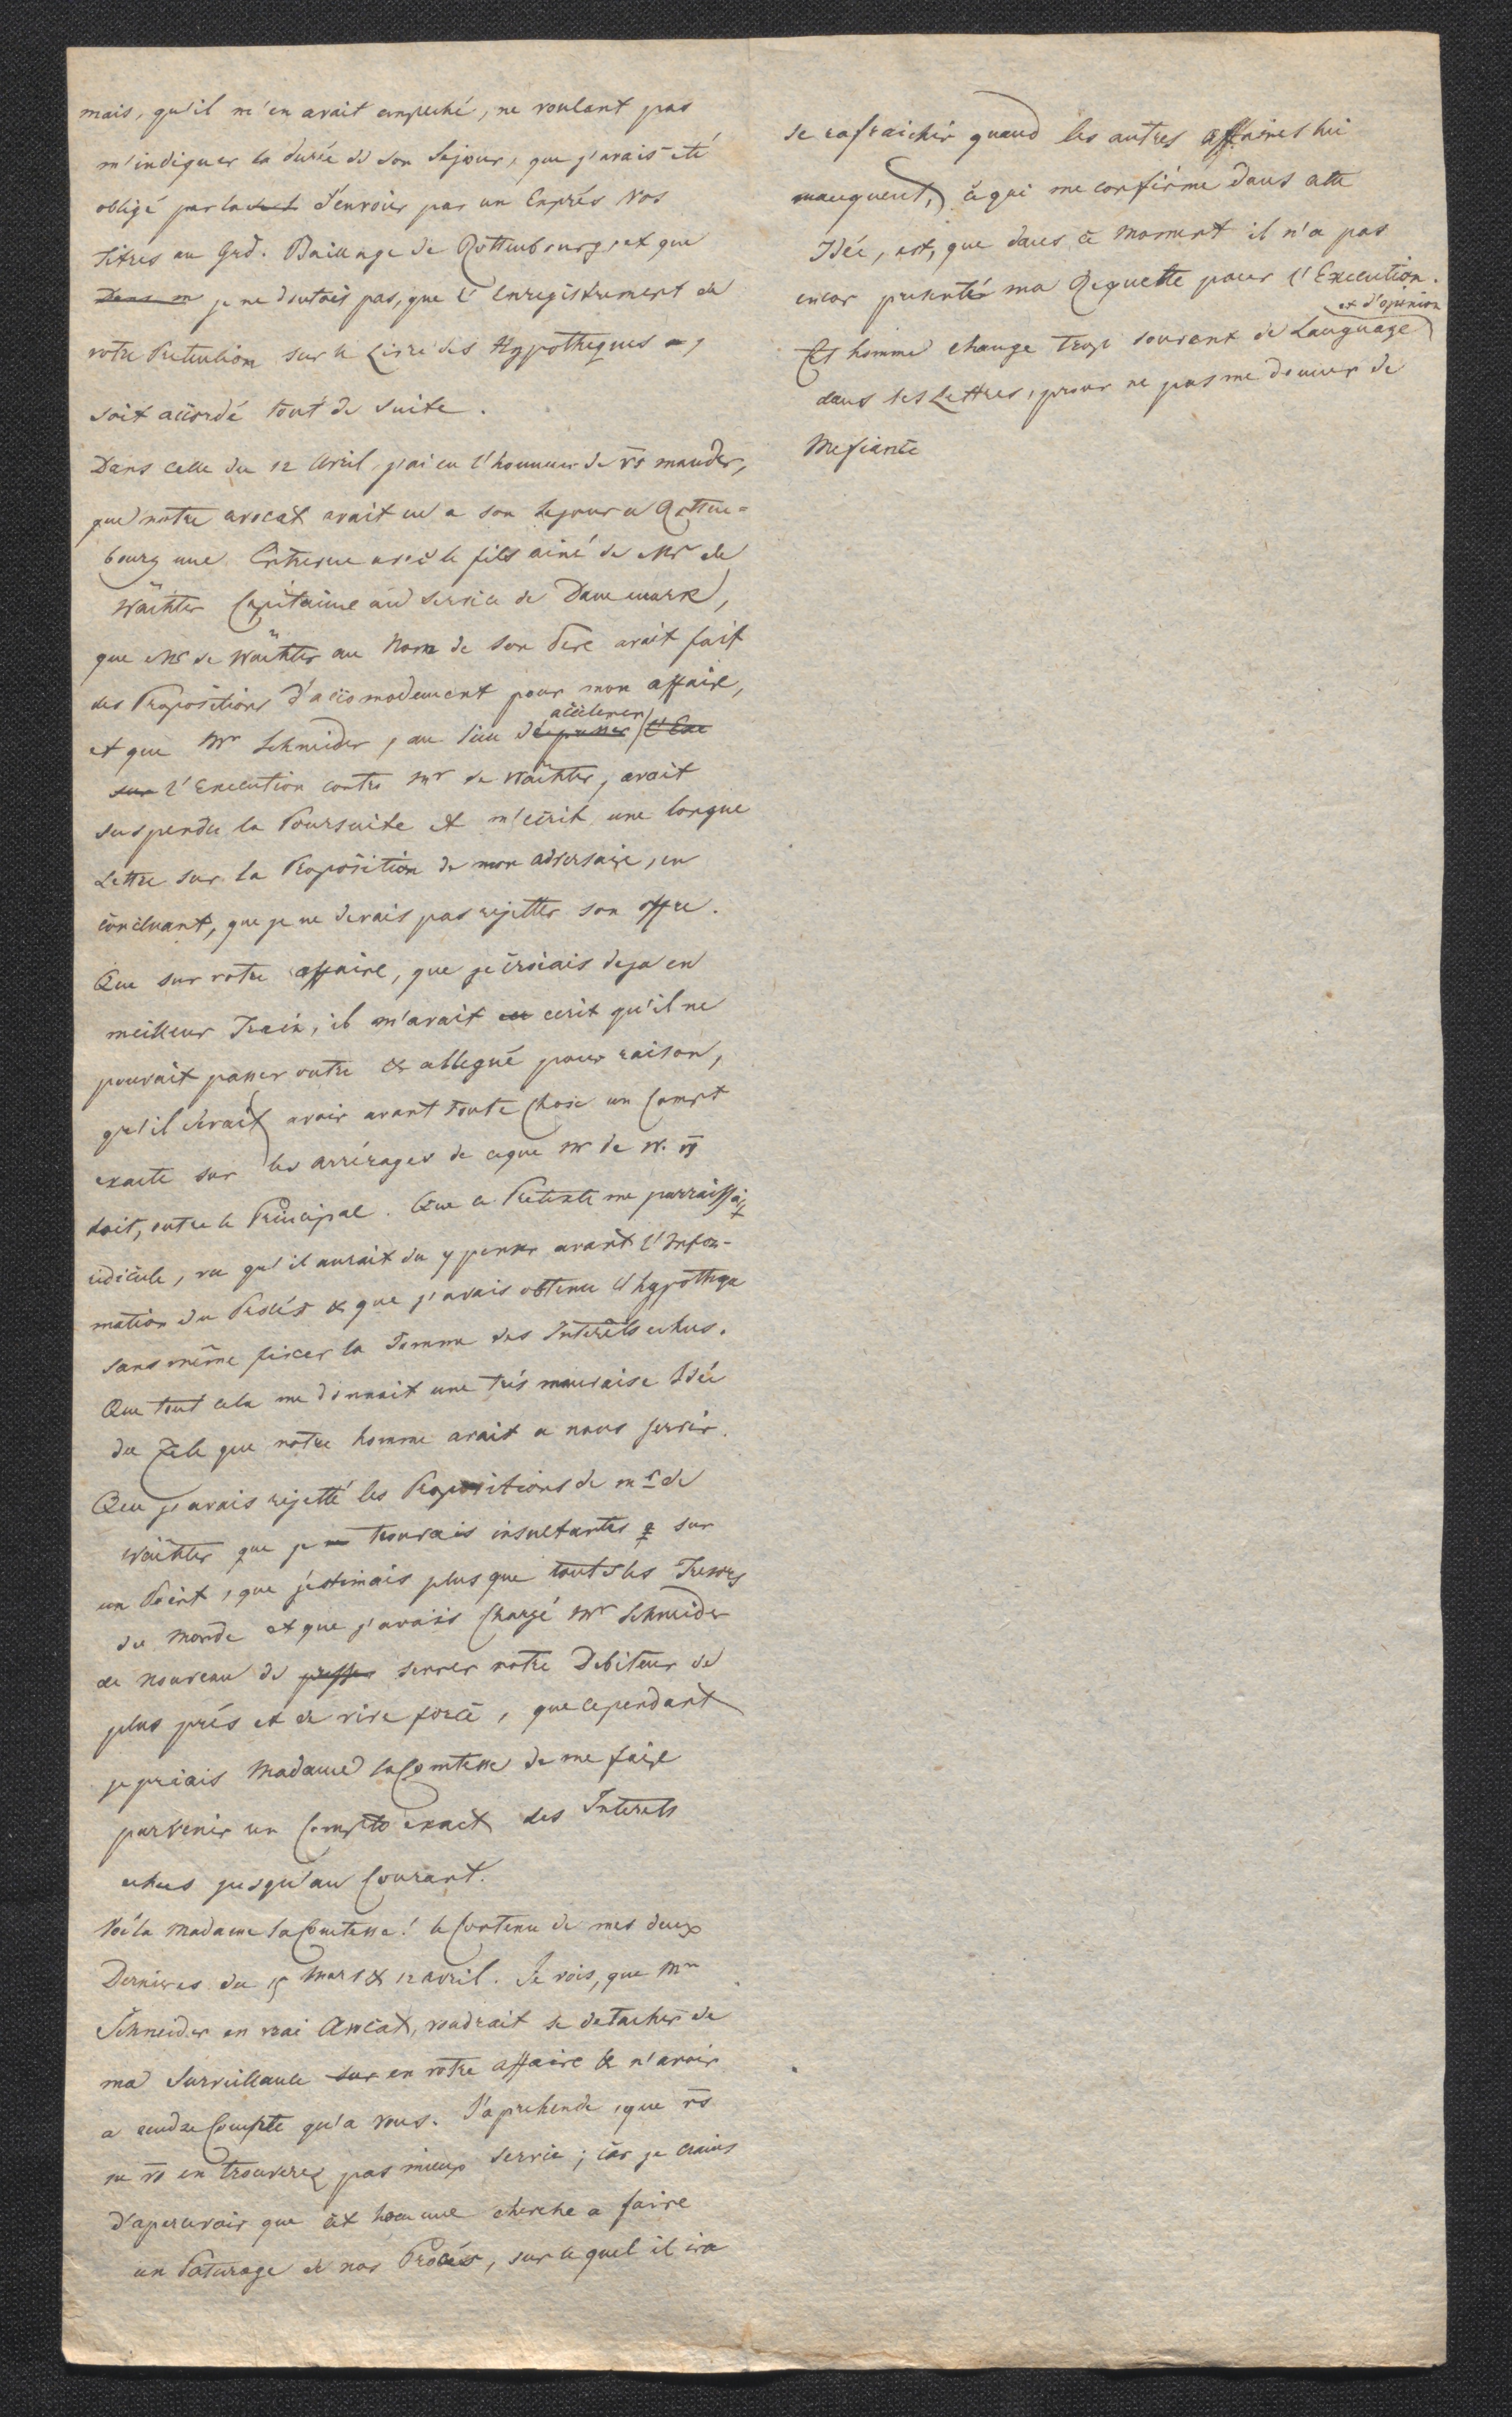 mais, qu'il m'en avait empeché, ne voulant pas
m'indiquer la durée de son Sejour, que j'avais eté
obligé par la d'envoier par un Exprés Vos
titres au Grd. Bailliage de Rottenbourg, et que
Dans m je ne doutois pas, que l'enregistrement de
votre Pretention sur le Livre des Hypotheques,
soit accordé tout de suite.
Dans celle du 12 Avril j'ai eu l'honneur de vs mander,
que notre avocat avait eu a son sejour a Rotten=
bourg une Entrevue avec le fils ainé de Mr de
Wächter Capitaine au service de Danemark,
que Mr de Wächter au Nom de son Pere avait fait
des Propositions d'accomodement pour mon affaire,
accelerer
et que Mr Schneider, au lieu de presser l'Exe
sur l'Execution contre Mr de Wächter, avait
suspendu la Poursuite et m'ecrit une longue
Lettre sur la Proposition de mon adversaire, en
concluant, que je ne devais pas rejetter son offre.
Que sur votre affaire, que je croiais deja en
meilleur Train, il m'avait ecrit qu'il ne
pouvait passer outre & allegué pour raison,
qu'il devait avoir avant toute Chose un Compt
exacte sur les arrérages de ceque Mr de W. vs
doit, outre le Principal. Que ce Pretexte me parraissait
ridicule, vu qu'il aurait du y penser avant l'Infor-
mation du Procés & que j'avais obtenu l'hypotheque
sans même fixer la Somme des Interêts echus.
Que tout cela me donnait une trés mauvaise Idée
du Zele que notre homme avait a nous servir.
Que j'avais rejetté les Propositions de Mr de
Wächter que je trouvais insultantes sur
un Point, que j'estimais plus que touts les Tresors
du Monde et que j'avais Chargé Mr Schneider
de nouveau de presser serrer notre Debiteur de
plus prés et de vive force, que cependant
je priais Madame la Comtesse de me faire
parvenir un Compte exact des Interets
echus jusqu'au Courant.
Voila Madame la Comtesse! le Contenu de mes deux
Dernieres du 15 Mars & 12 avril. Je vois, que Mr
Schneider en vrai Avocat, voudrait se detacher de
ma Surveillance sur en votre affaire & n'avoir
a rendre Compte qu'a Vous. J'aprehende, que vs
ne vs en trouverez pas mieux servie; car je crains
d'apercevoir que cet homme cherche a faire
un Paturage de nos Procés, sur lequel il ira
se rafraichir quand les autres affaires lui
manquent, ce qui me confirme dans cette
Idée, est, que dans ce moment il n'a pas
encor presenté ma Requette pour l'Execution.
et d'opinion
Cet homme change trop souvent de Language
dans ses Lettres, pour ne pas me donner de
Mefiance